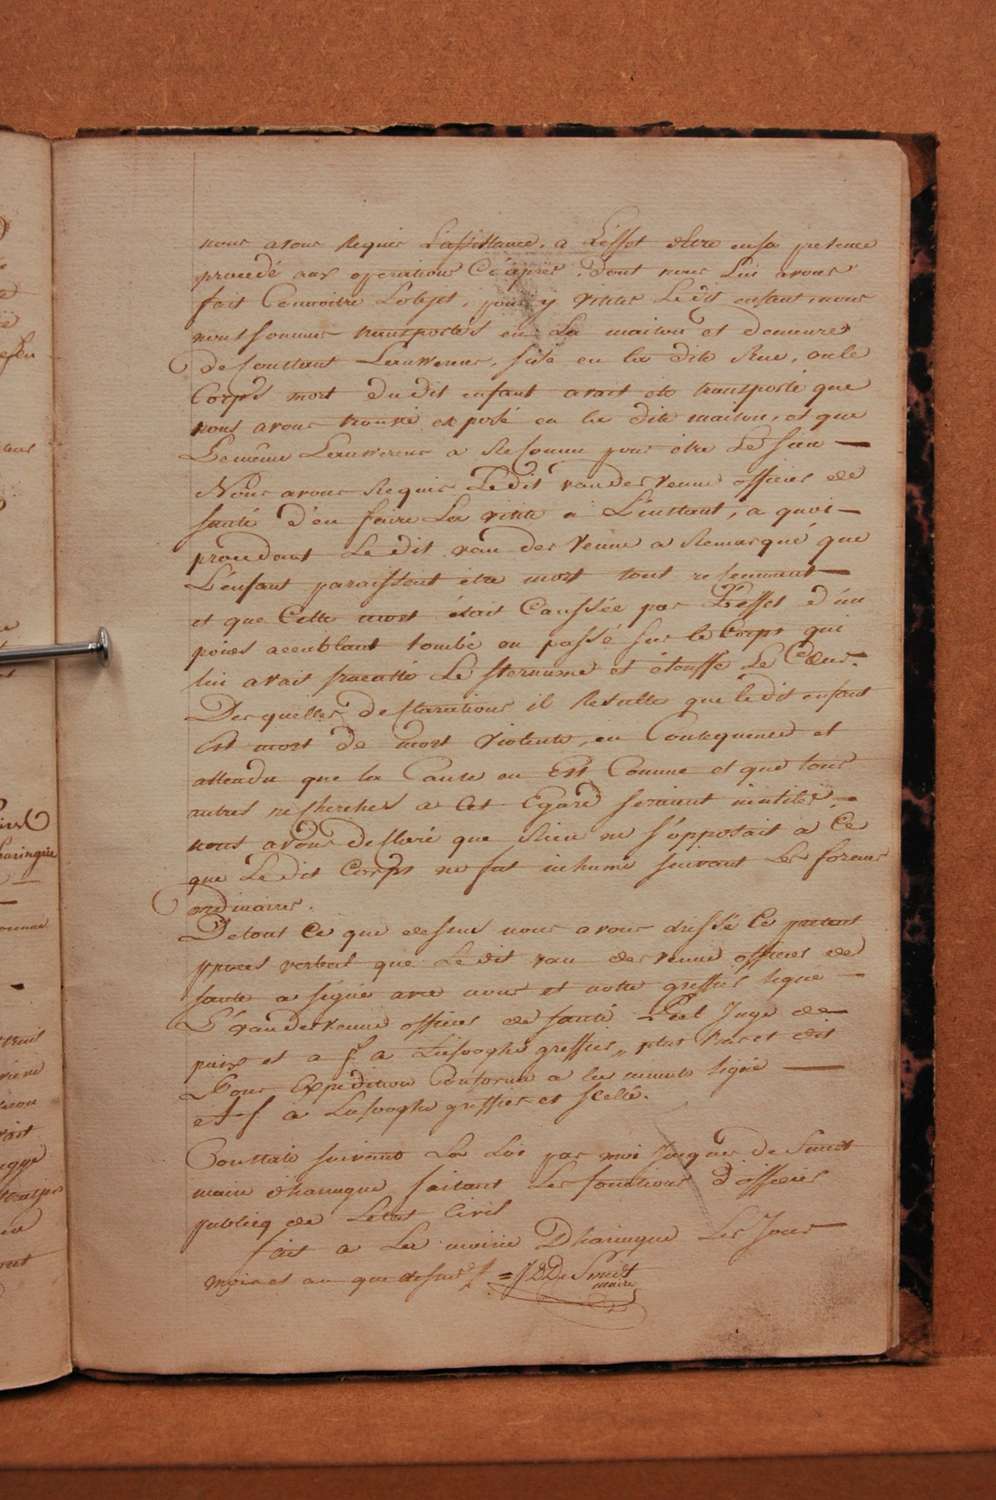 nous avons Requis L'assistance, a L'effet d'etre en sa presence
procedé aux operations Ci après, dont nous Lui avons
fait Connoitre L'objet, pour y visiter Ledit enfant, nous
nous sommes transportés en La maison et demeure
de Constant Lauwereus, sise en la dite Rue, ou le
Corps mort du dit enfant avait eté transporté que
nous avons trouvé exposé en la dite maison, et que
Lemême Lauwereus a Reconnu pour être Le Sien —
Nous avons Requis Ledit van der venne officier de
santé d'en faire La visite a L'instant, a quoi —
procedant Ledit van der venne a Remarqué que
L'enfant paraissent être mort tout recemment —
et que Cette mort était Caussée par L'effet d'un
poies accablant tombé ou passé sur le Corps qui
lui avait fracassé Le sternume et étouffé Le Cœur.
Des quelles declarations il Resulte que ledit enfant
Est mort de mort violente, en Consequence et
attendu que la Cause en Est Connue et que tous
autres recherches a Cet Egard seraient inutiles —
nous avons declaré que Rien ne s'opposait a Ce
que Ledit Corps ne fut inhumé suivant Les formes
ordinaires.
De tout Ce que dessus nous avons dressé Ce present
proces verbal que Ledit van der venne officier de
santé a signé avec nous et notre greffier signé —
L' van der venne officier de santé juge de
paix et a f. a greffier, plus bas et dit
Pour Expedition Conforme a la minute signé —
et f a greffier et scellé.
Constaté suivant La Loi par moi Jacques de Smedt
maire d'haringue faisant Les fonctions d'officier
publicq de Letat Civil
fait a La mairie D'haringue Les Jour
mois et an que dessus = J D De Smedt
maire